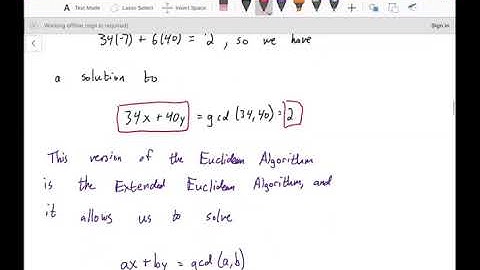 Text Mode
Lasso Select
Insert Space
Working offline (sign in required)
Sign in
34(-7) + 6(40) = 2, so we have
a solution to
34x + 40y = gcd(34,40) = 2
This version of the Euclidean Algorithm
is the Extended Euclidean Algorithm, and
it allows us to solve
ax + by = gcd(a,b)